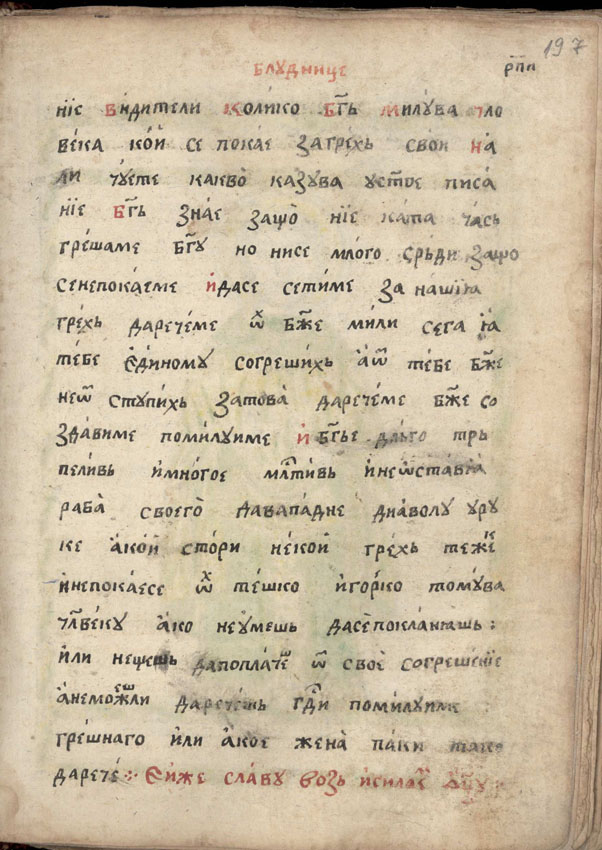 блꙋднице
рп҃п 197
нїе видители колико бг҃ь милꙋва чло
века кой се покае за грехь свои на
ли чꙋете какво̀ казꙋва ꙋстое писа
нїе бг҃ь знае защо̀ нїе ката чась
грешаме бг҃ꙋ но нисе млого срьди защо
се непокаеме и дасе сетиме за нашїѧ
грехь даречеме ѿ бж҃е мили сега ꙗ
тебе единомꙋ согрешихь а ѿ тебе бж҃е
не ѿстꙋпихь затова̀ даречеме бж҃е со
здавиме помилꙋиме и бг҃ье дльго трь
пеливь и многое млт҃ивь и не ѿставїа
раба̀ своего̀ давападне дїаволꙋ ꙋ рꙋ
ке ако́й стори некой грехь тежекь
и непокаесе ѿх тешко и горко томꙋва
чл҃векꙋ ако не ꙋмешь дасе поклан꙯ашь :
или нещешь даполатешь ѿ своѐ согрешенїе
а неможешли даречешь гд҃и помилꙋиме
грешнаго или ако́е жена̀ паки тако
даречѐ ⁘ Ей же славꙋ возь и сила